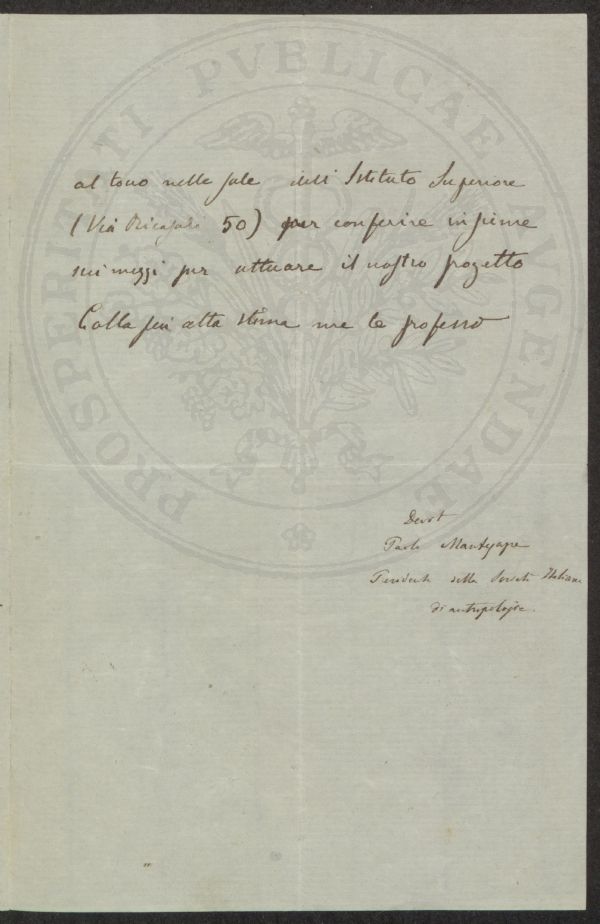 PROSPERITATI PVBLICAE AVGENDAE
al tocco nelle sale dell'Istituto Superiore
(Via Ricasoli 50) per conferire insieme
sui mezzi per attuare il nostro progetto
Colla più alta stima me le professo
Devot
Paolo Mantegazza
Presidente della Società Italiana
di antropologia.